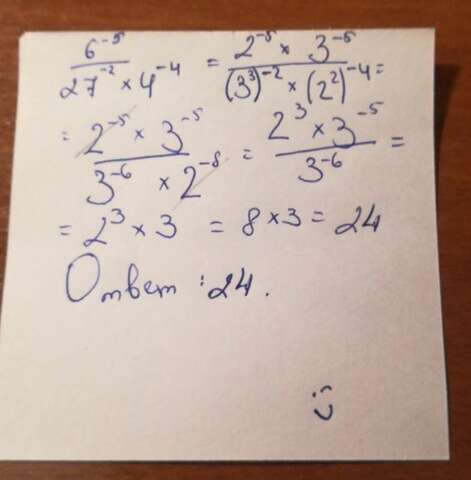 6⁻⁵ / (27⁻² × 4⁻⁴) = (2⁻⁵ × 3⁻⁵) / ((3³)⁻² × (2²)⁻⁴) =
= (2⁻⁵ × 3⁻⁵) / (3⁻⁶ × 2⁻⁸) = (2³ × 3⁻⁵) / 3⁻⁶ =
= 2³ × 3 = 8 × 3 = 24
Ответ : 24.
:)